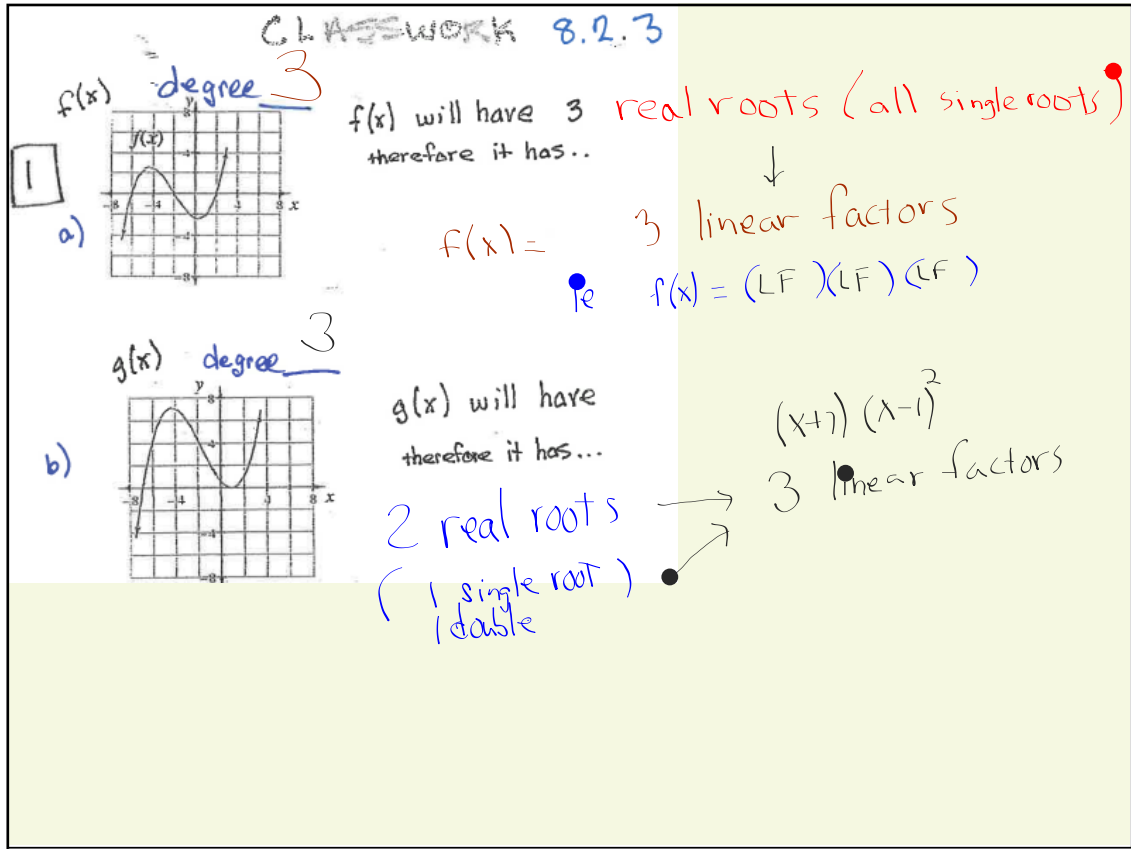 CLASSWORK 8.2.3
f(x) degree 3
y
8
f(x)
4
-8 -4 4 8 x
-4
-8
1
a)
f(x) will have 3 real roots (all single roots)
therefore it has..
↓
f(x) = 3 linear factors
ie f(x) = (LF)(LF)(LF)
g(x) degree 3
y
8
4
-8 -4 4 8 x
-4
-8
b)
g(x) will have
therefore it has...
(x+7)(x-1)²
3 linear factors
2 real roots
(1 single root)
1 double